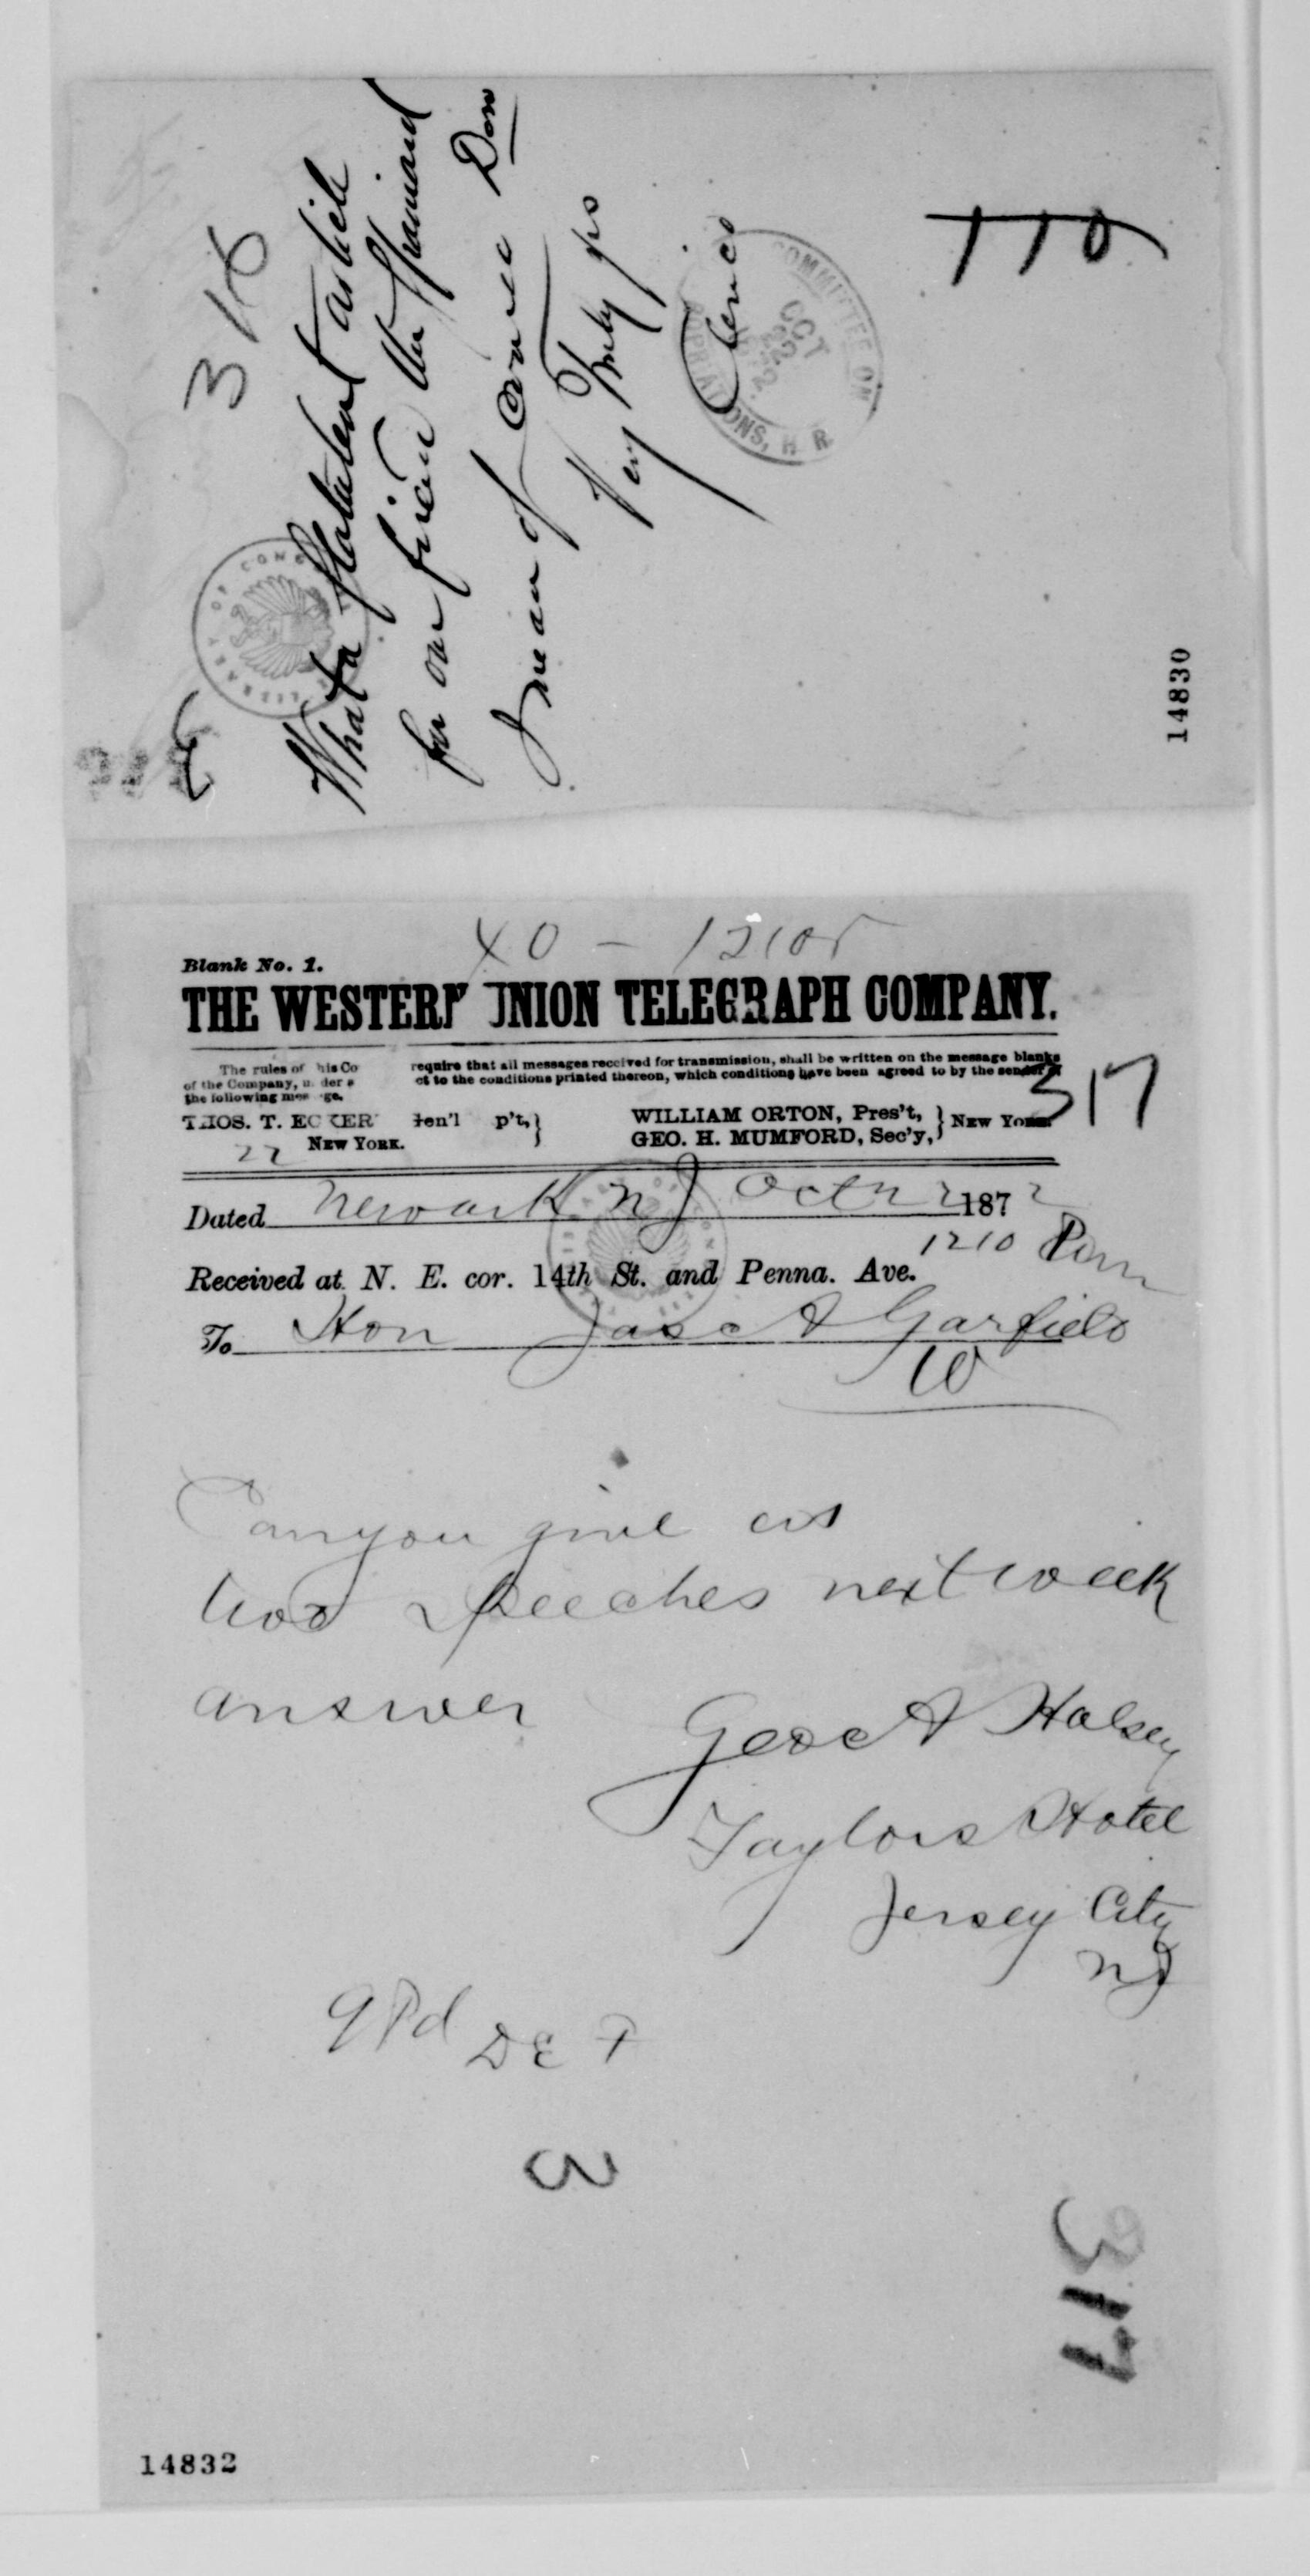 316
What a flatulent article
for our friend the Spaniard
I mean of course Don
Very truly yrs
COMMITTEE ON
OCT
22
APPROPRIATIONS, H R
LIBRARY OF CONGRESS
110
14830
40 - 1210r
Blank No. 1.
THE WESTERN UNION TELEGRAPH COMPANY.
The rules of this Co require that all messages received for transmission, shall be written on the message blanks
of the Company, under ct to the conditions printed thereon, which conditions have been agreed to by the sender of
the following message.
317
THOS. T. ECKERT Gen'l p't, } WILLIAM ORTON, Pres't, } NEW YORK
27 NEW YORK. GEO. H. MUMFORD, Sec'y,
Dated Newark NJ Octr 22 1872
1210 Pm
Received at N. E. cor. 14th St. and Penna. Ave.
To Hon Jas A Garfield
W
Can you give us
two speeches next week
answer
Geo A Halsey
Taylors Hotel
Jersey City
NJ
9 Pd
3
317
14832